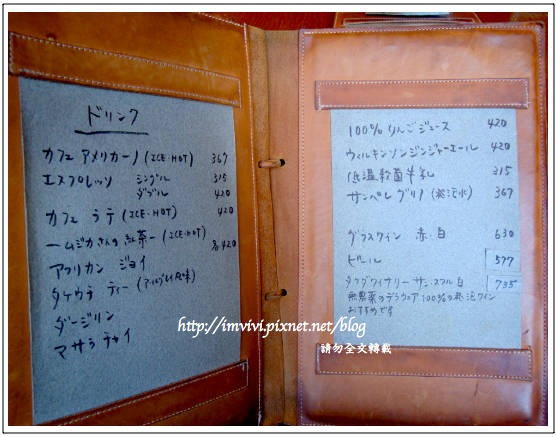 ドリンク
カフェ アメリカーノ (ICE・HOT) 367
エスプレッソ シングル 315
ダブル 420
カフェ ラテ (ICE・HOT) 420
ームジカさんの紅茶ー (ICE・HOT) 各420
アフリカン ジョイ
タケウチ ティー
ダージリン
マサラ チャイ
100% りんごジュース 420
ウィルキンソンジンジャーエール 420
低温殺菌牛乳 315
サンペレグリノ (発泡水) 367
グラスワイン 赤・白 630
ビール 577
タケダワイナリー サン・スフル 白 735
無農薬のデラウェア100%の発泡ワイン
おすすめです
http://imvivi.pixnet.net/blog
請勿全文轉載